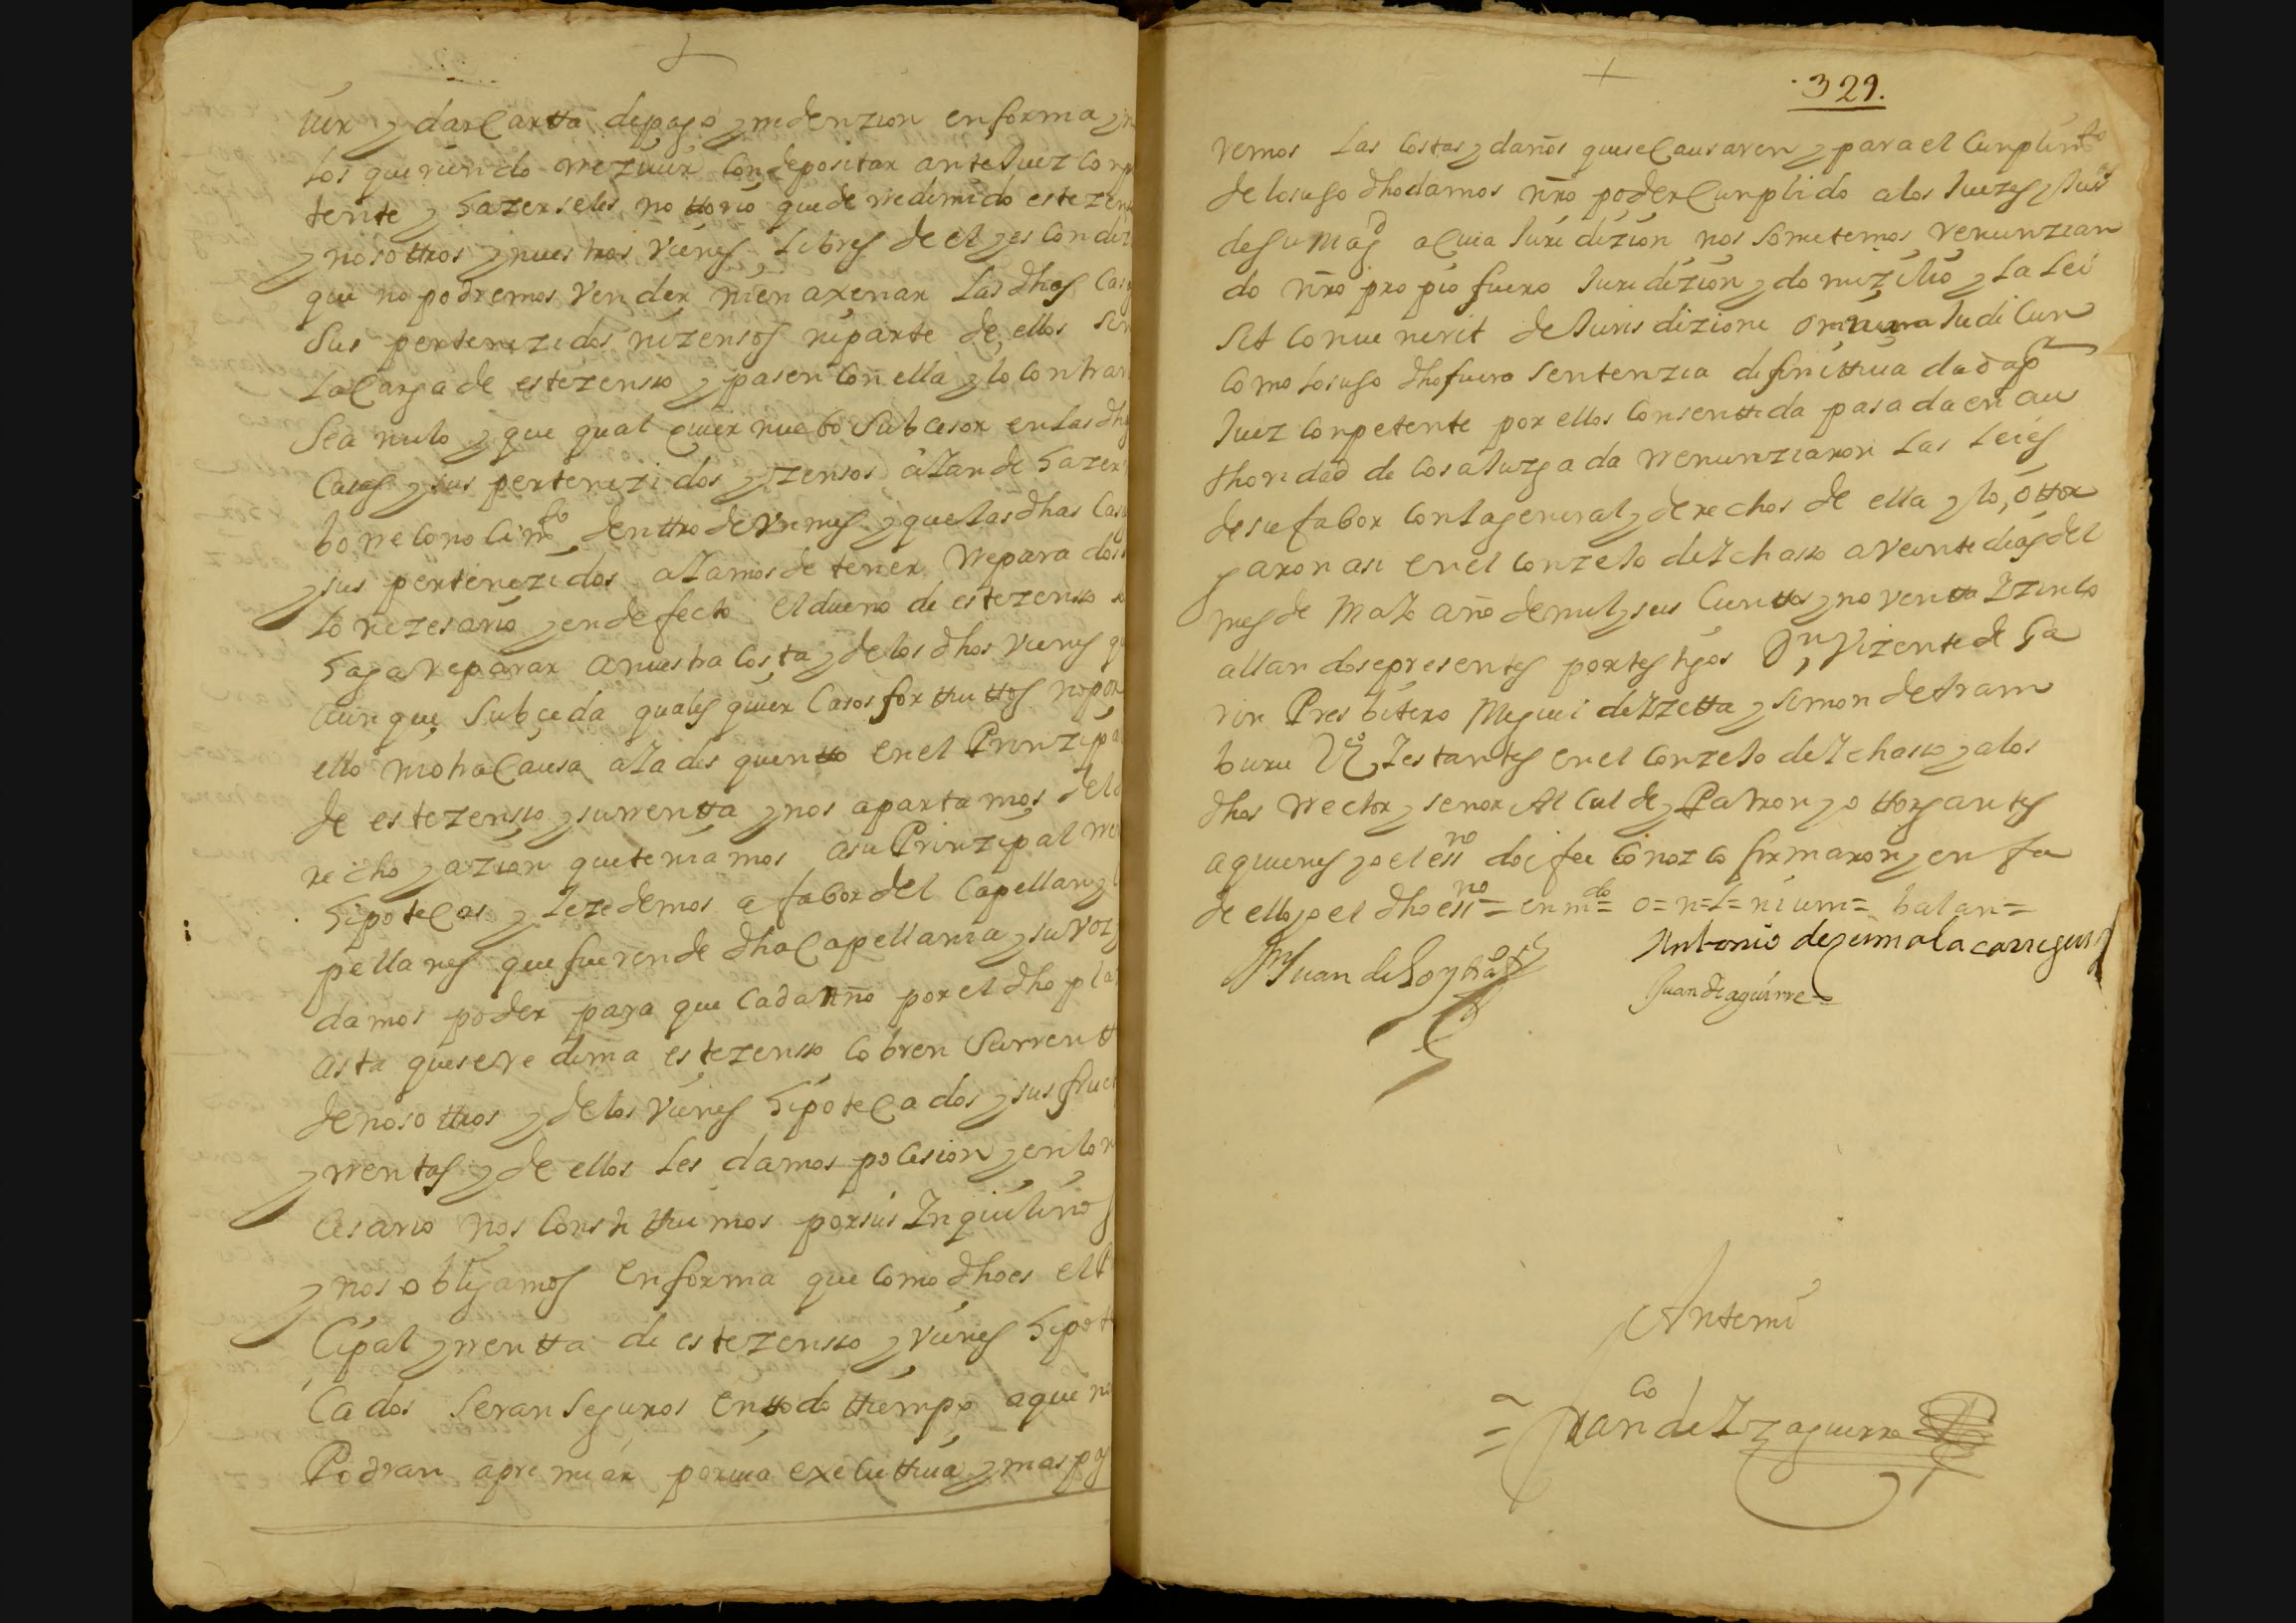 uir y dar Cartta de pago y redenzion en forma y no
los queriendo rrezeuir con depositar ante Juez Conpe
tente y hazerseles nottorio quede rredimido este zenso
y nosottros y nuestros vienes libres de el y es Condiz
que no podremos vender ni en axenar las dhas Cas
sus pertenezidos ni zensos ni parte de ellos sin
la Carga de este zensso y pasen con ella y lo contrar
sea nulo y que qual quier nuebo Subcesor en las dhas
Casas y sus pertenezidos y zensos aian de hazer
bo reconocimto denttro de un mes y que las dhas Cas
y sus pertenezidos aiamos de tener rreparados
lo nezesario y en defecto el dueno de este zensso lo
haga reparar a nuestra Costa y de los dhos vienes y
aunque Subceda quales quier Casos forttuittos no por
ello ni otra Causa aia desquentto en el Prinzipal
de este zensso y su rrentta y nos apartamos del de
recho y azion que teniamos a su Prinzipal rre
hipotecas y le zedemos a fabor del Capellan y
pellanes que fueren de dha Capellania y su voz y
damos poder para que Cada año por el dho pla
asta que se redima este zensso Cobren Su rrentt
de nosottros y de los vienes hipotecados y sus fruc
y rrentas y de ellos les damos posesion y en lo n
cesario nos Constittuimos por sus Inquilinos
y nos obligamos en forma que como dho es el P
cipal y rrentta de este zensso y vienes hipote
cados Seran Seguros en ttodo ttiempo a que no
Podran apremiar por via executtiua y mas pa
329.
remos las Costas y daños que se Causaren y para el Cunplimto
de lo suso dho damos nro poder Cunplido a los Juezes y Jus
de su Magd a Cuia Juridizion nos Sometemos renunzian
do nro propio fuero Juridizion y domizilio y la lei
Sit conuenerit de Jurisdizione omnium Judicun
como lo suso dho fuera Sentenzia definittiua dada por
Juez Conpetente por ellos Consenttida pasada en au
thoridad de cosa Juzgada rrenunziaron las leies
de su fabor con la general y derechos de ella y lo ottor
garon asi en el Conzejo de Ichasso a veinte dias del
mes de Maio año de mil y seis Cienttos y noventta Izinco
allandose presentes por testigos Dn Vizente de Ga
rin Presbitero Miguel de Izetta y simon de Aram
buru Vos Iestantes en el Conzejo de Ichasso y a los
dhos rrector y señor Alcalde y Patron y ottorgantes
a quienes yo el essno doi fee Conozco firmaron y en fee
de ello yo el dho essno = enmdo = o = n = l = nium = balan =
Juan de
Antonio de zumalacarregui
Juan de aguirre
Ante mi
Franco de Izaguirre